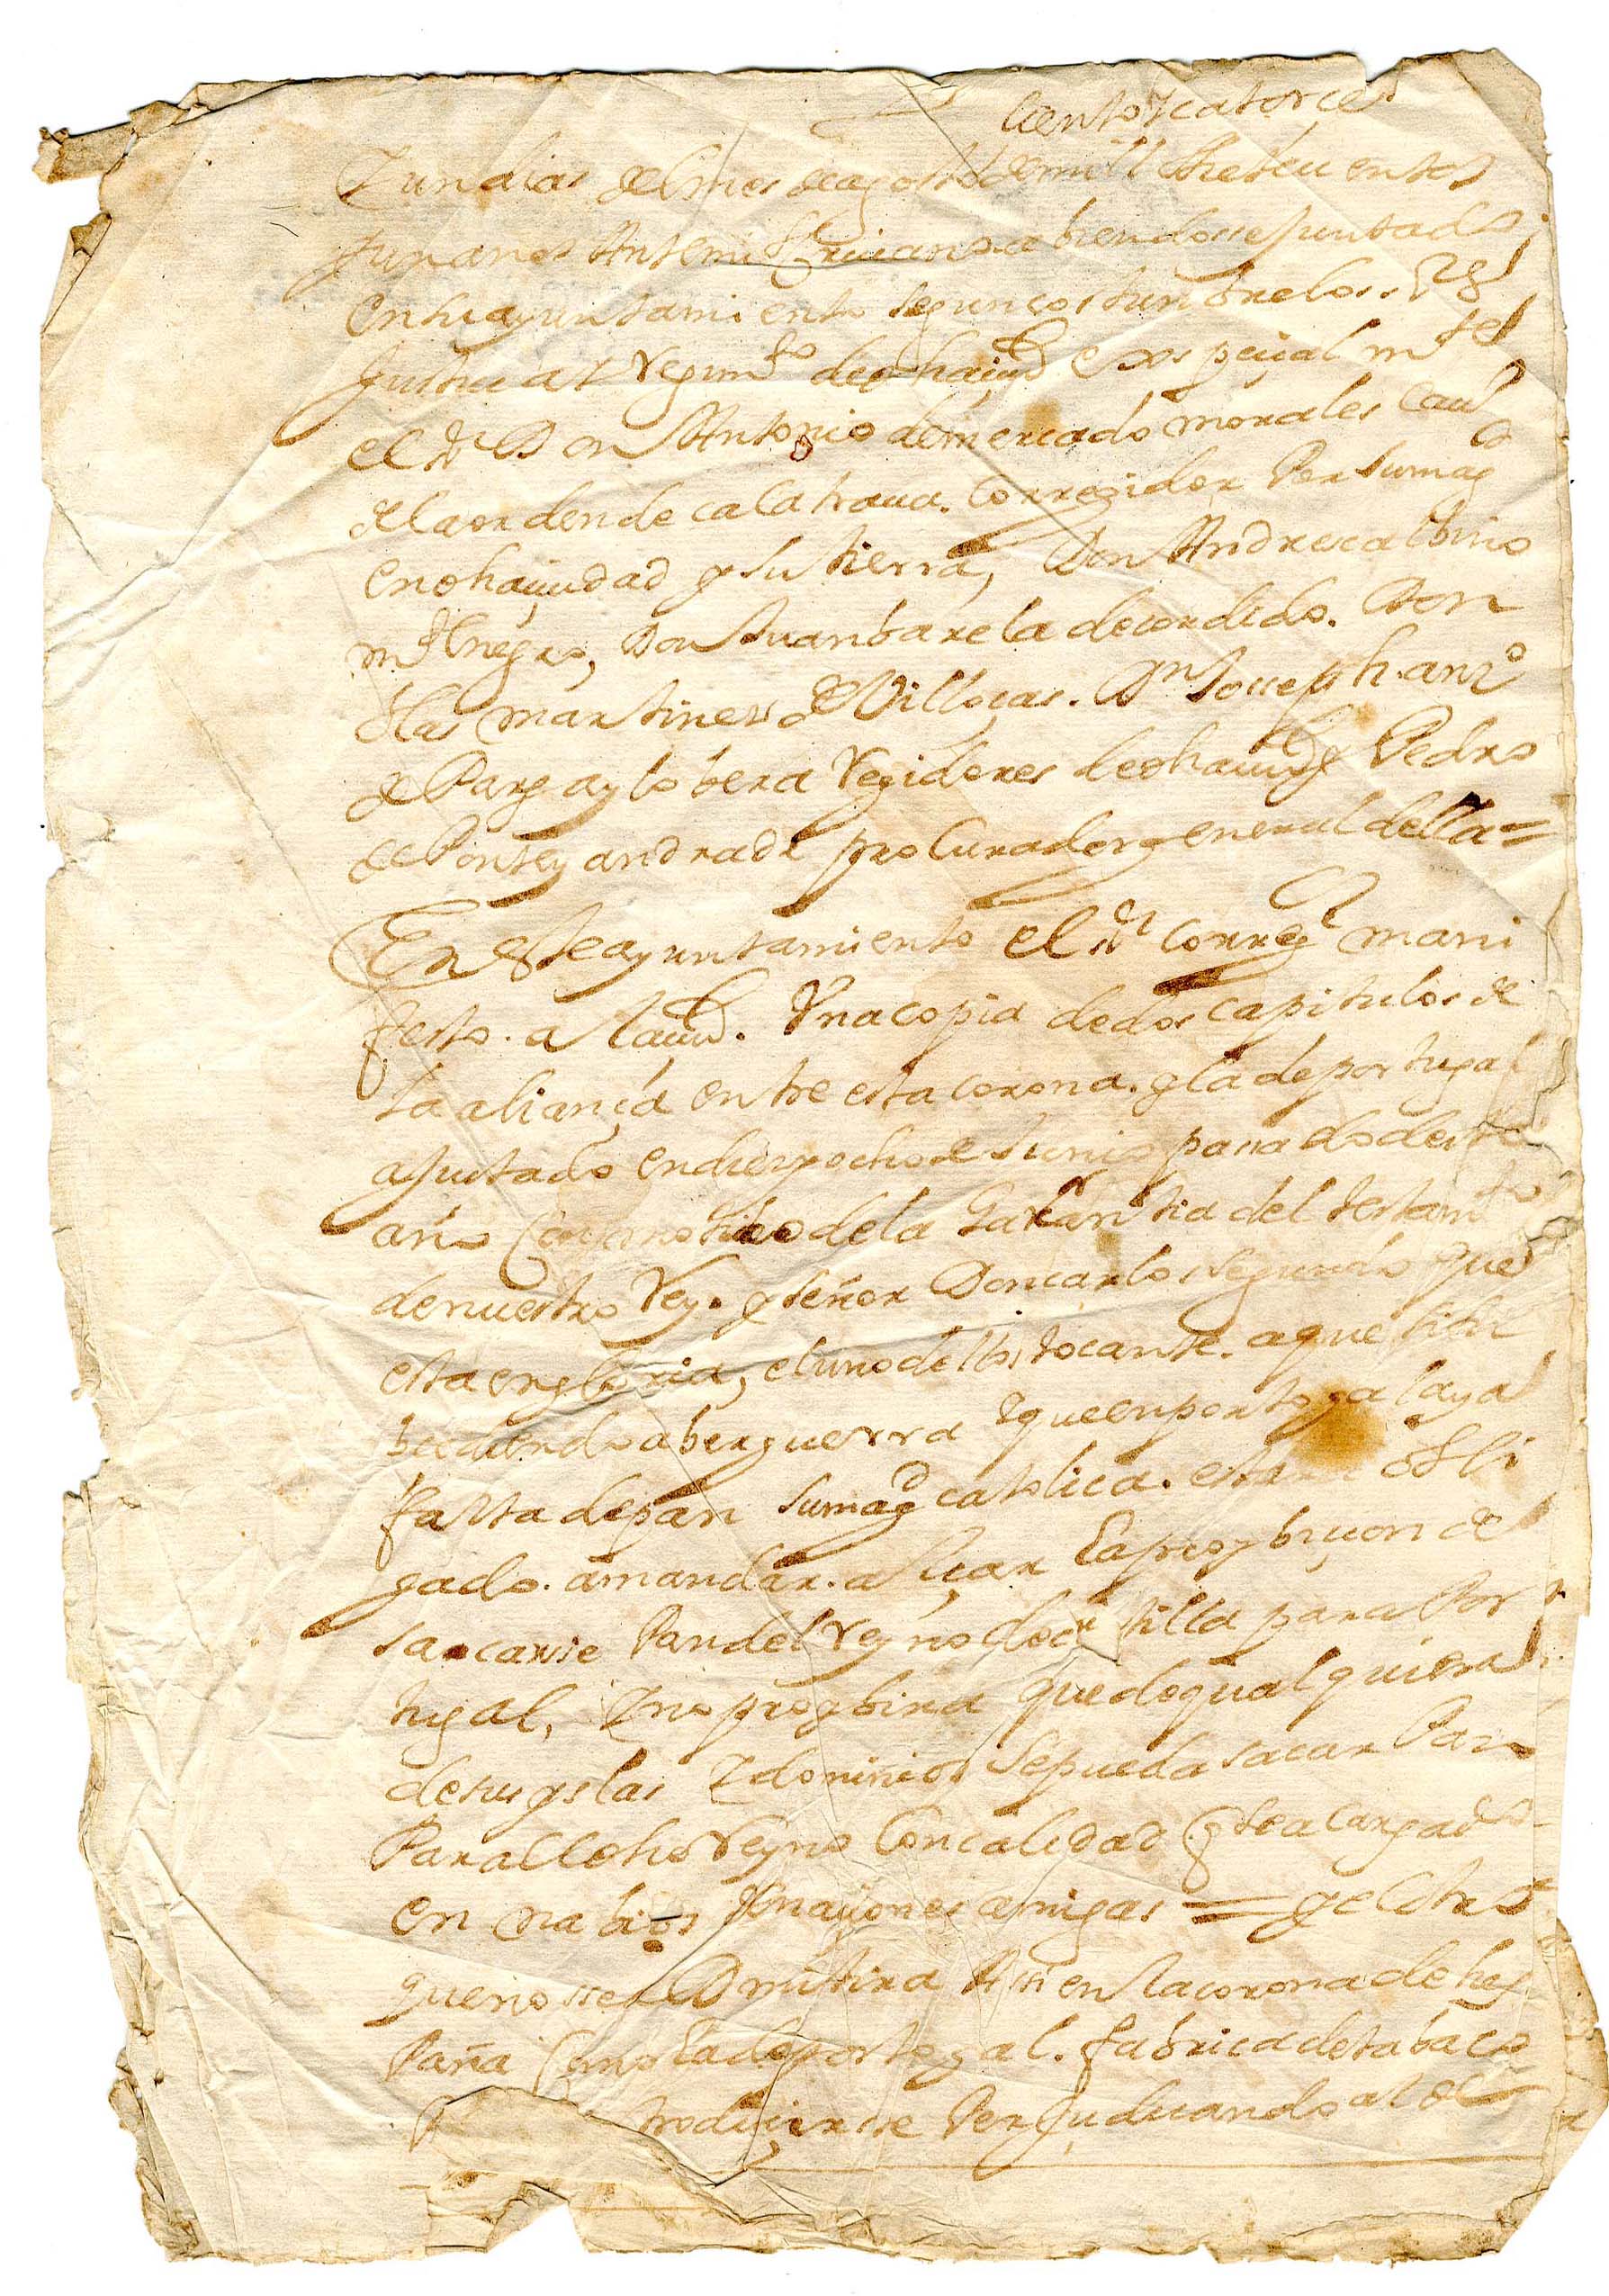 Ciento y catorce
Y un dias del mes de agosto de mill setecientos
y un anos Ante mi escriuano abiendosse juntado
en su ayuntamiento segun costunbre los ss
Justicia y Regimto de dha ciud espeçial mte
el sr Don Antonio de mercado morales cauo
de la orden de calatraua. Corregidor Por su magd
en dha çiudad y su tierra, Don Andres albino
Montenegro, Don Juan barela de cordido. Don
blas martines de Villoças. Dn Josseph anto
de Parga y lobera Regidores de dha ciud y Pedro
de Ponte y andrade procurador general della =
En este ayuntamiento el sr corregr mani
festo. a la ciud. Vna copia de dos capitulos de
la aliança entre esta corona. y la de portugal
ajustado en diez y ocho de Junio passado deste
año Con motibo de la Garantia del testamto
de nuestro Rey. y señor Don carlos segundo que
esta en gloria, el uno dellos tocante. a que si su
bcediendo aber guerra y que en portogal aya
falta de pan su magd catolica. estara obli
gado. a mandar. alçar La proybiçion de
sacarse Pan del Reyno de castilla para Por
tugal, Y no proybira que de qualquiera
de sus yslas Y dominios se pueda sacar Pan
Para el dho Reyno Con calidad q sea cargado
en nabios de naçiones amigas = y el otro
que no sse admitira Assi en la corona de hes
Paña Como La de portogal. fabrica de tabaco
troduçirsse Perjudicando al de